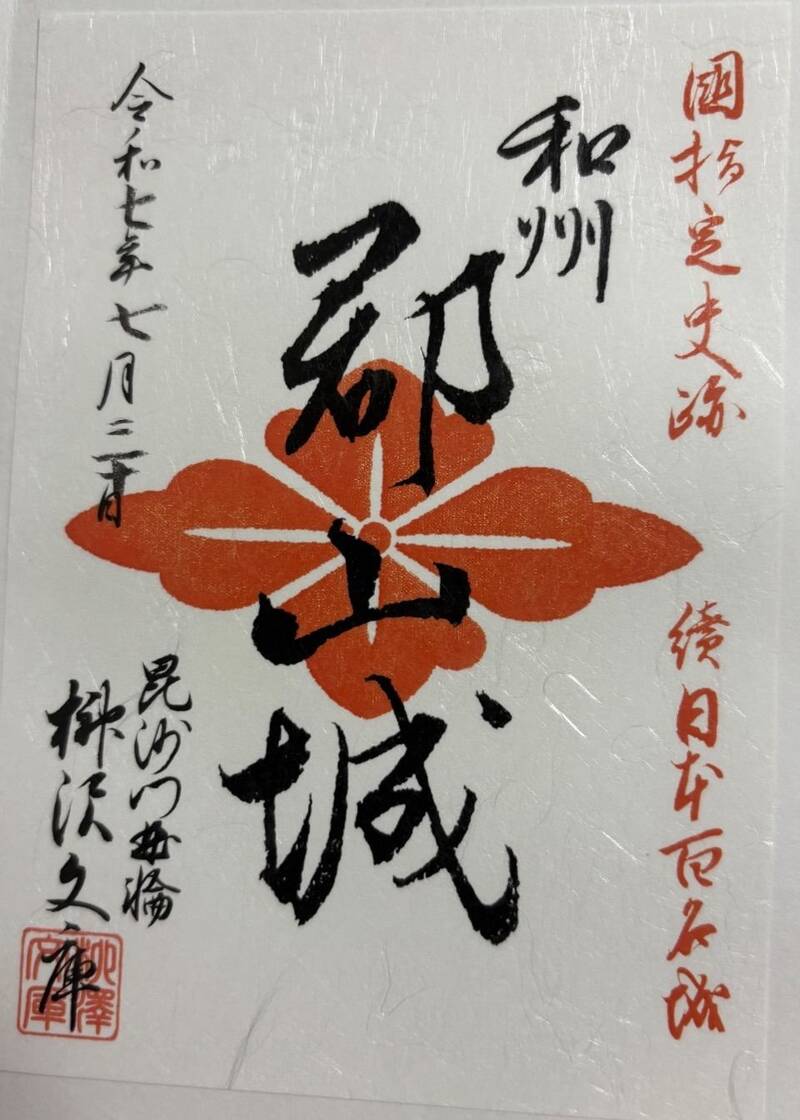 國指定史跡
續日本百名城
和州
郡山城
令和七年七月二十日
毘沙門曲輪
柳沢文庫
柳澤文庫